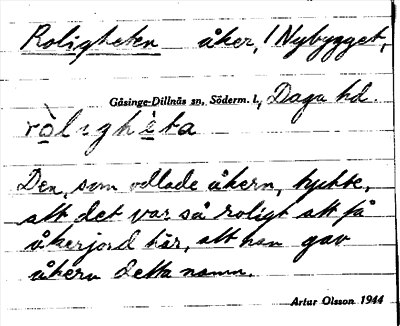 Roligheten åker, i Nybygget,
Gåsinge-Dillnäs sn, Söderm. l., Daga hd.
ròlighèta
Den, som odlade åkern, tyckte,
att det var så roligt att få
åkerjord här, att han gav
åkern detta namn.
Artur Olsson 1944